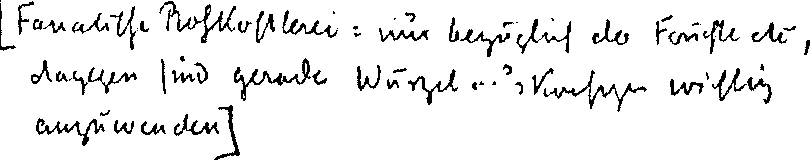 [Fanatische Rohköstlerei = nur bezüglich der Früchte etc,
dagegen sind gerade Wurzel wichtig
anzuwenden]